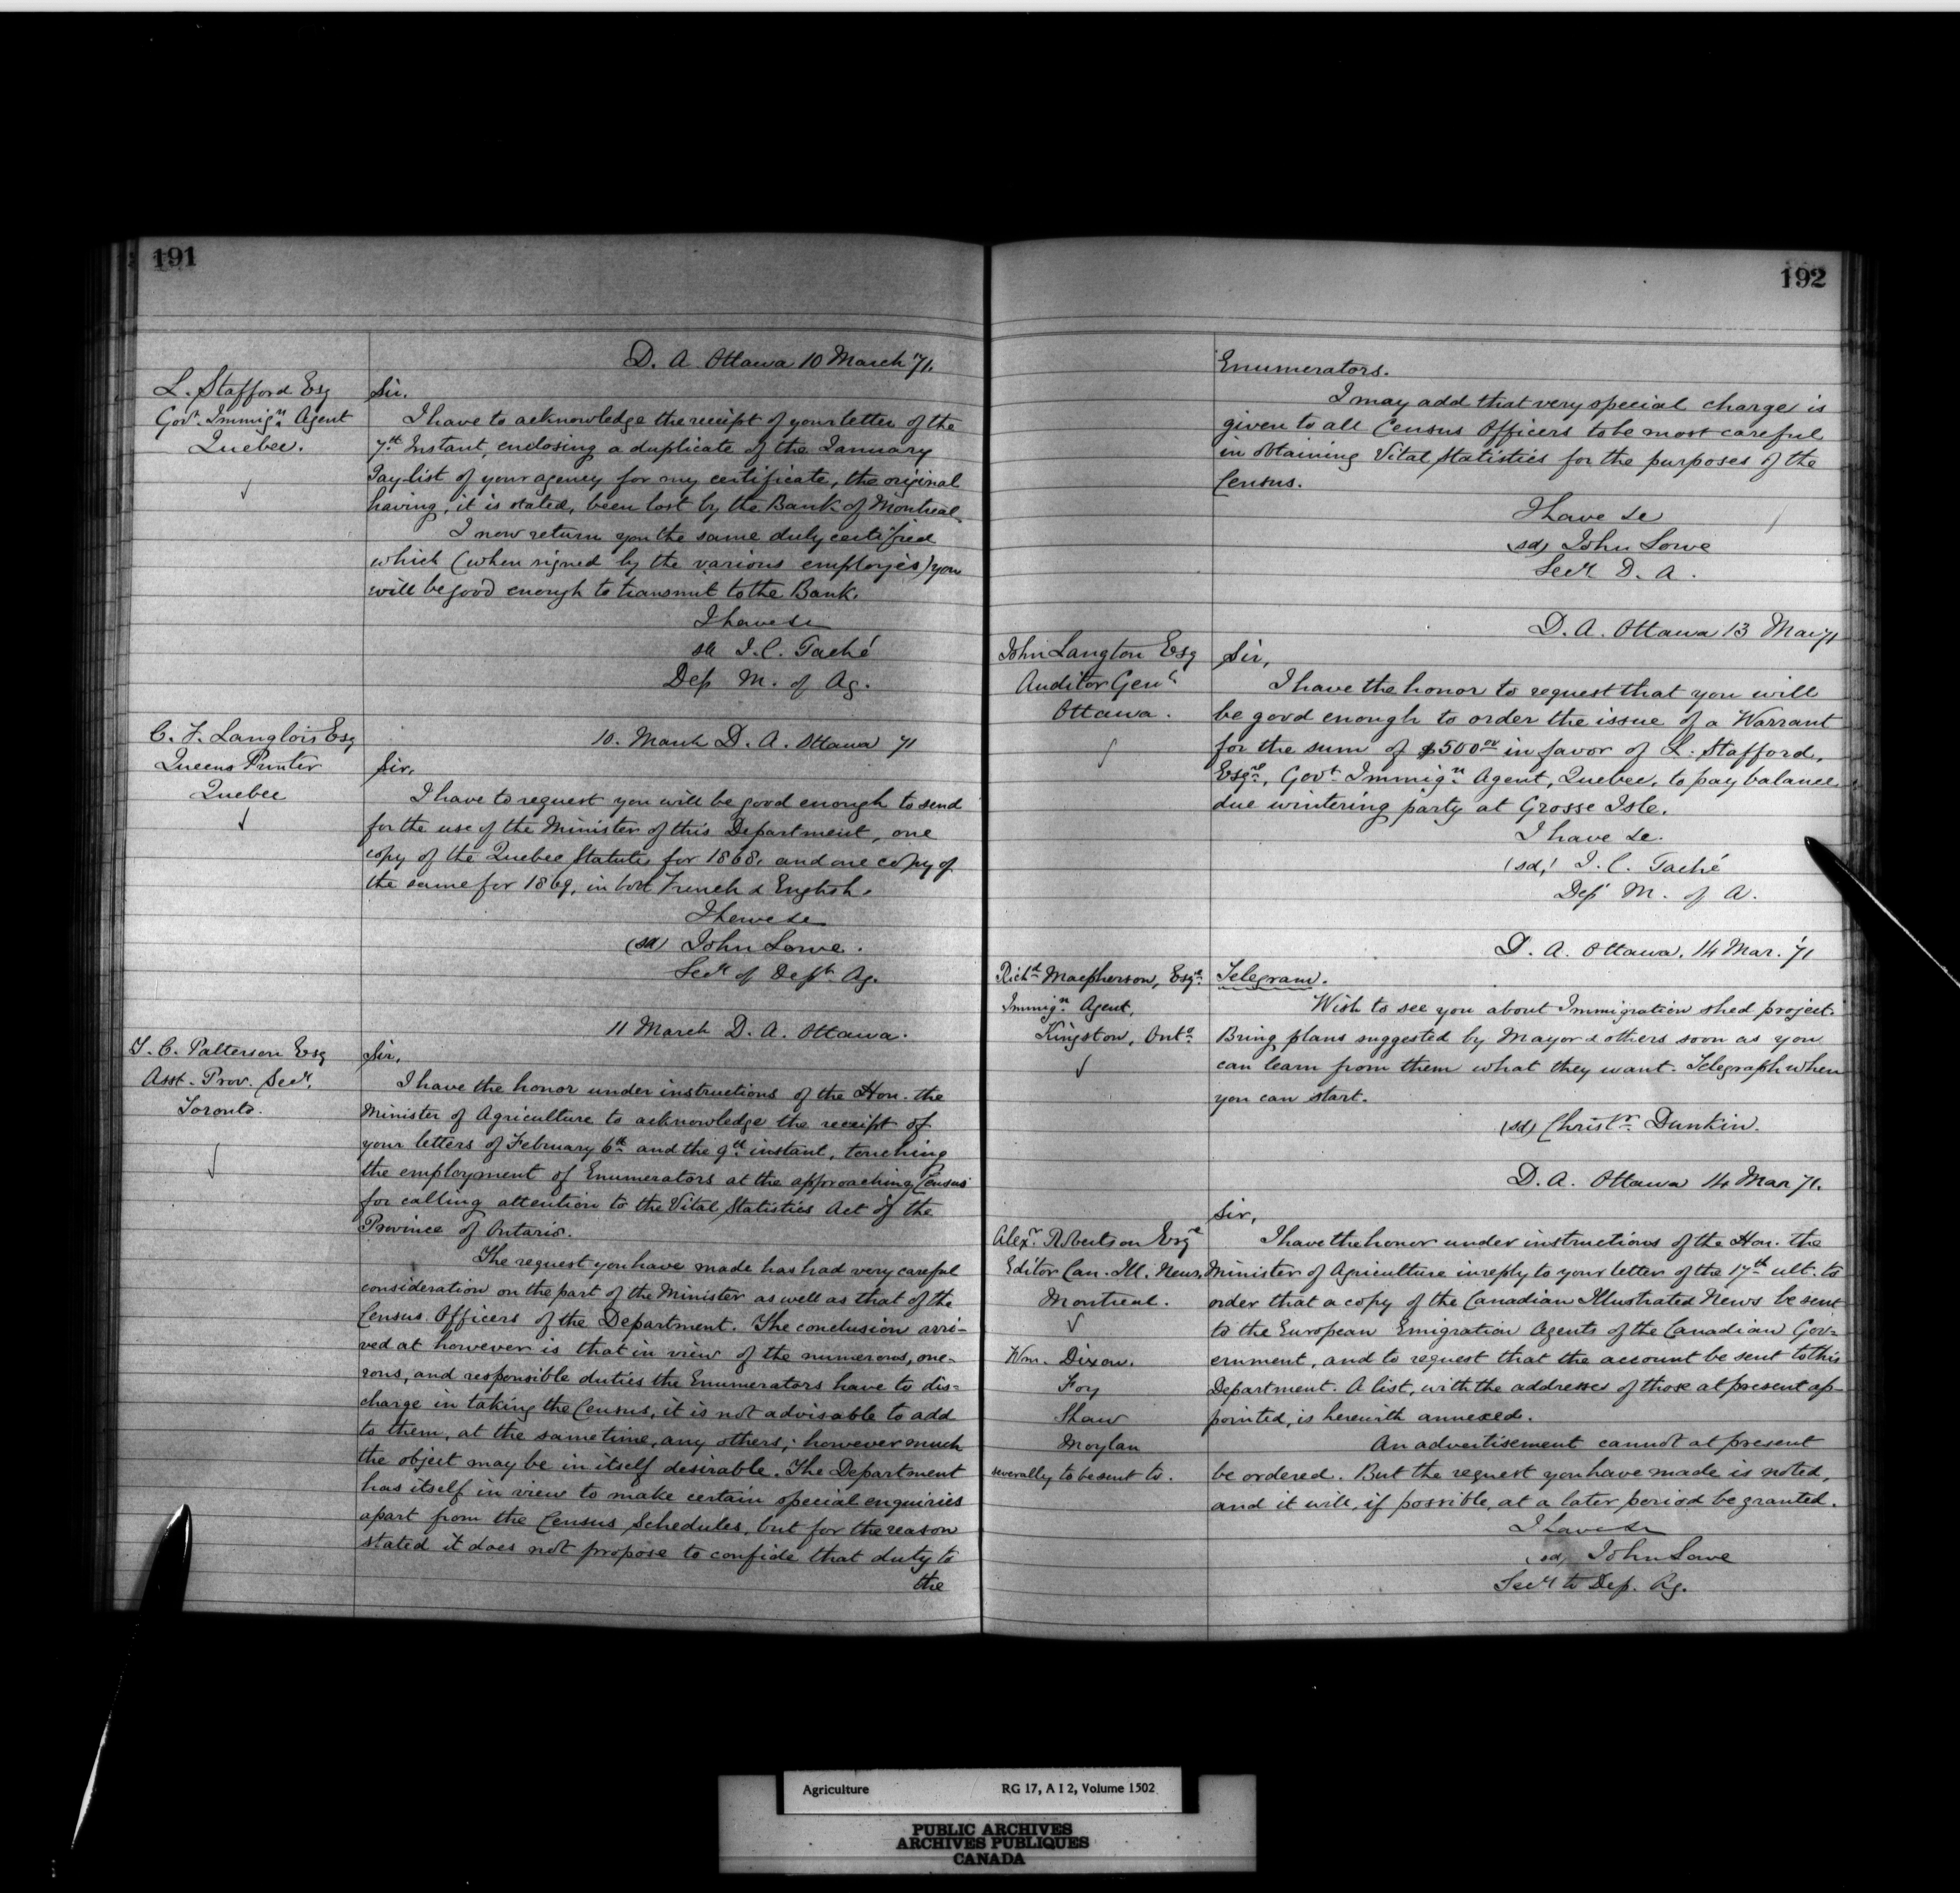 191
D. A. Ottawa 10 March '71.
L. Stafford Esq
Govt. Immign. Agent
Quebec.
Sir.
I have to acknowledge the receipt of your letter of the
7th Instant, enclosing a duplicate of the January
Pay-list of your agency for my certificate, the original
having, it is stated, been lost by the Bank of Montreal.
I now return you the same duly certified
which (when signed by the various employés) you
will be good enough to transmit to the Bank.
I have &c
sd J. C. Taché
Dep M. of Ag.
C. F. Langlois Esq
Queens Printer
Quebec
10. March D. A. Ottawa 71
Sir.
I have to request you will be good enough to send
for the use of the Minister of this Department, one
copy of the Quebec Statutes for 1868. and one copy of
the same for 1869, in both French & English.
I have &c
(sd) John Lowe.
Secy of Dept. Ag.
11 March D. A. Ottawa.
T. C. Patterson Esq
Asst. Prov. Secy.
Toronto.
Sir,
I have the honor under instructions of the Hon. the
Minister of Agriculture to acknowledge the receipt of
your letters of February 6th and the 9th instant, touching
the employment of Enumerators at the approaching Census
for calling attention to the Vital Statistics Act of the
Province of Ontario.
The request you have made has had very careful
consideration on the part of the Minister as well as that of the
Census Officers of the Department. The conclusion arri-
ved at however is that in view of the numerous, one-
rous, and responsible duties the Enumerators have to dis-
charge in taking the Census, it is not advisable to add
to them, at the same time, any others; however much
the object may be in itself desirable. The Department
has itself in view to make certain special enquiries
apart from the Census Schedules, but for the reason
stated it does not propose to confide that duty to
the
192
Enumerators.
I may add that very special charge is
given to all Census Officers to be most careful
in obtaining Vital Statistics for the purposes of the
Census.
I have &c
(sd) John Lowe
Secy D. A.
D. A. Ottawa 13 Mar 71
John Langton Esq
Auditor Genl
Ottawa.
Sir,
I have the honor to request that you will
be good enough to order the issue of a Warrant
for the sum of $500.00 in favor of L. Stafford,
Esqre., Govt. Immign. Agent, Quebec, to pay balance
due wintering party at Grosse Isle.
I have &c.
(sd) J. C. Taché
Dep M. of A.
D. A. Ottawa, 14 Mar. '71
Richd Macpherson, Esqre.
Immign. Agent,
Kingston, Onto.
Telegram.
Wish to see you about Immigration shed project.
Bring plans suggested by Mayor & others soon as you
can learn from them what they want. Telegraph when
you can start.
(sd) Christr. Dunkin.
D. A. Ottawa 14 Mar 71.
Sir,
Alexr. Robertson Esqre
Editor Can. Ill. News,
Montreal.
I have the honor under instructions of the Hon. the
Minister of Agriculture in reply to your letter of the 17th ult. to
order that a copy of the Canadian Illustrated News be sent
to the European Emigration Agents of the Canadian Gov-
ernment, and to request that the account be sent to this
Department. A list, with the addresses of those at present ap-
pointed, is herewith annexed.
Wm. Dixon.
Foy
Shaw
Moylan
severally to be sent to.
An advertisement cannot at present
be ordered. But the request you have made is noted,
and it will, if possible, at a later period be granted.
I have &c
(sd) John Lowe
Secy to Dep. Ag.
Agriculture RG 17, A I 2, Volume 1502
PUBLIC ARCHIVES
ARCHIVES PUBLIQUES
CANADA